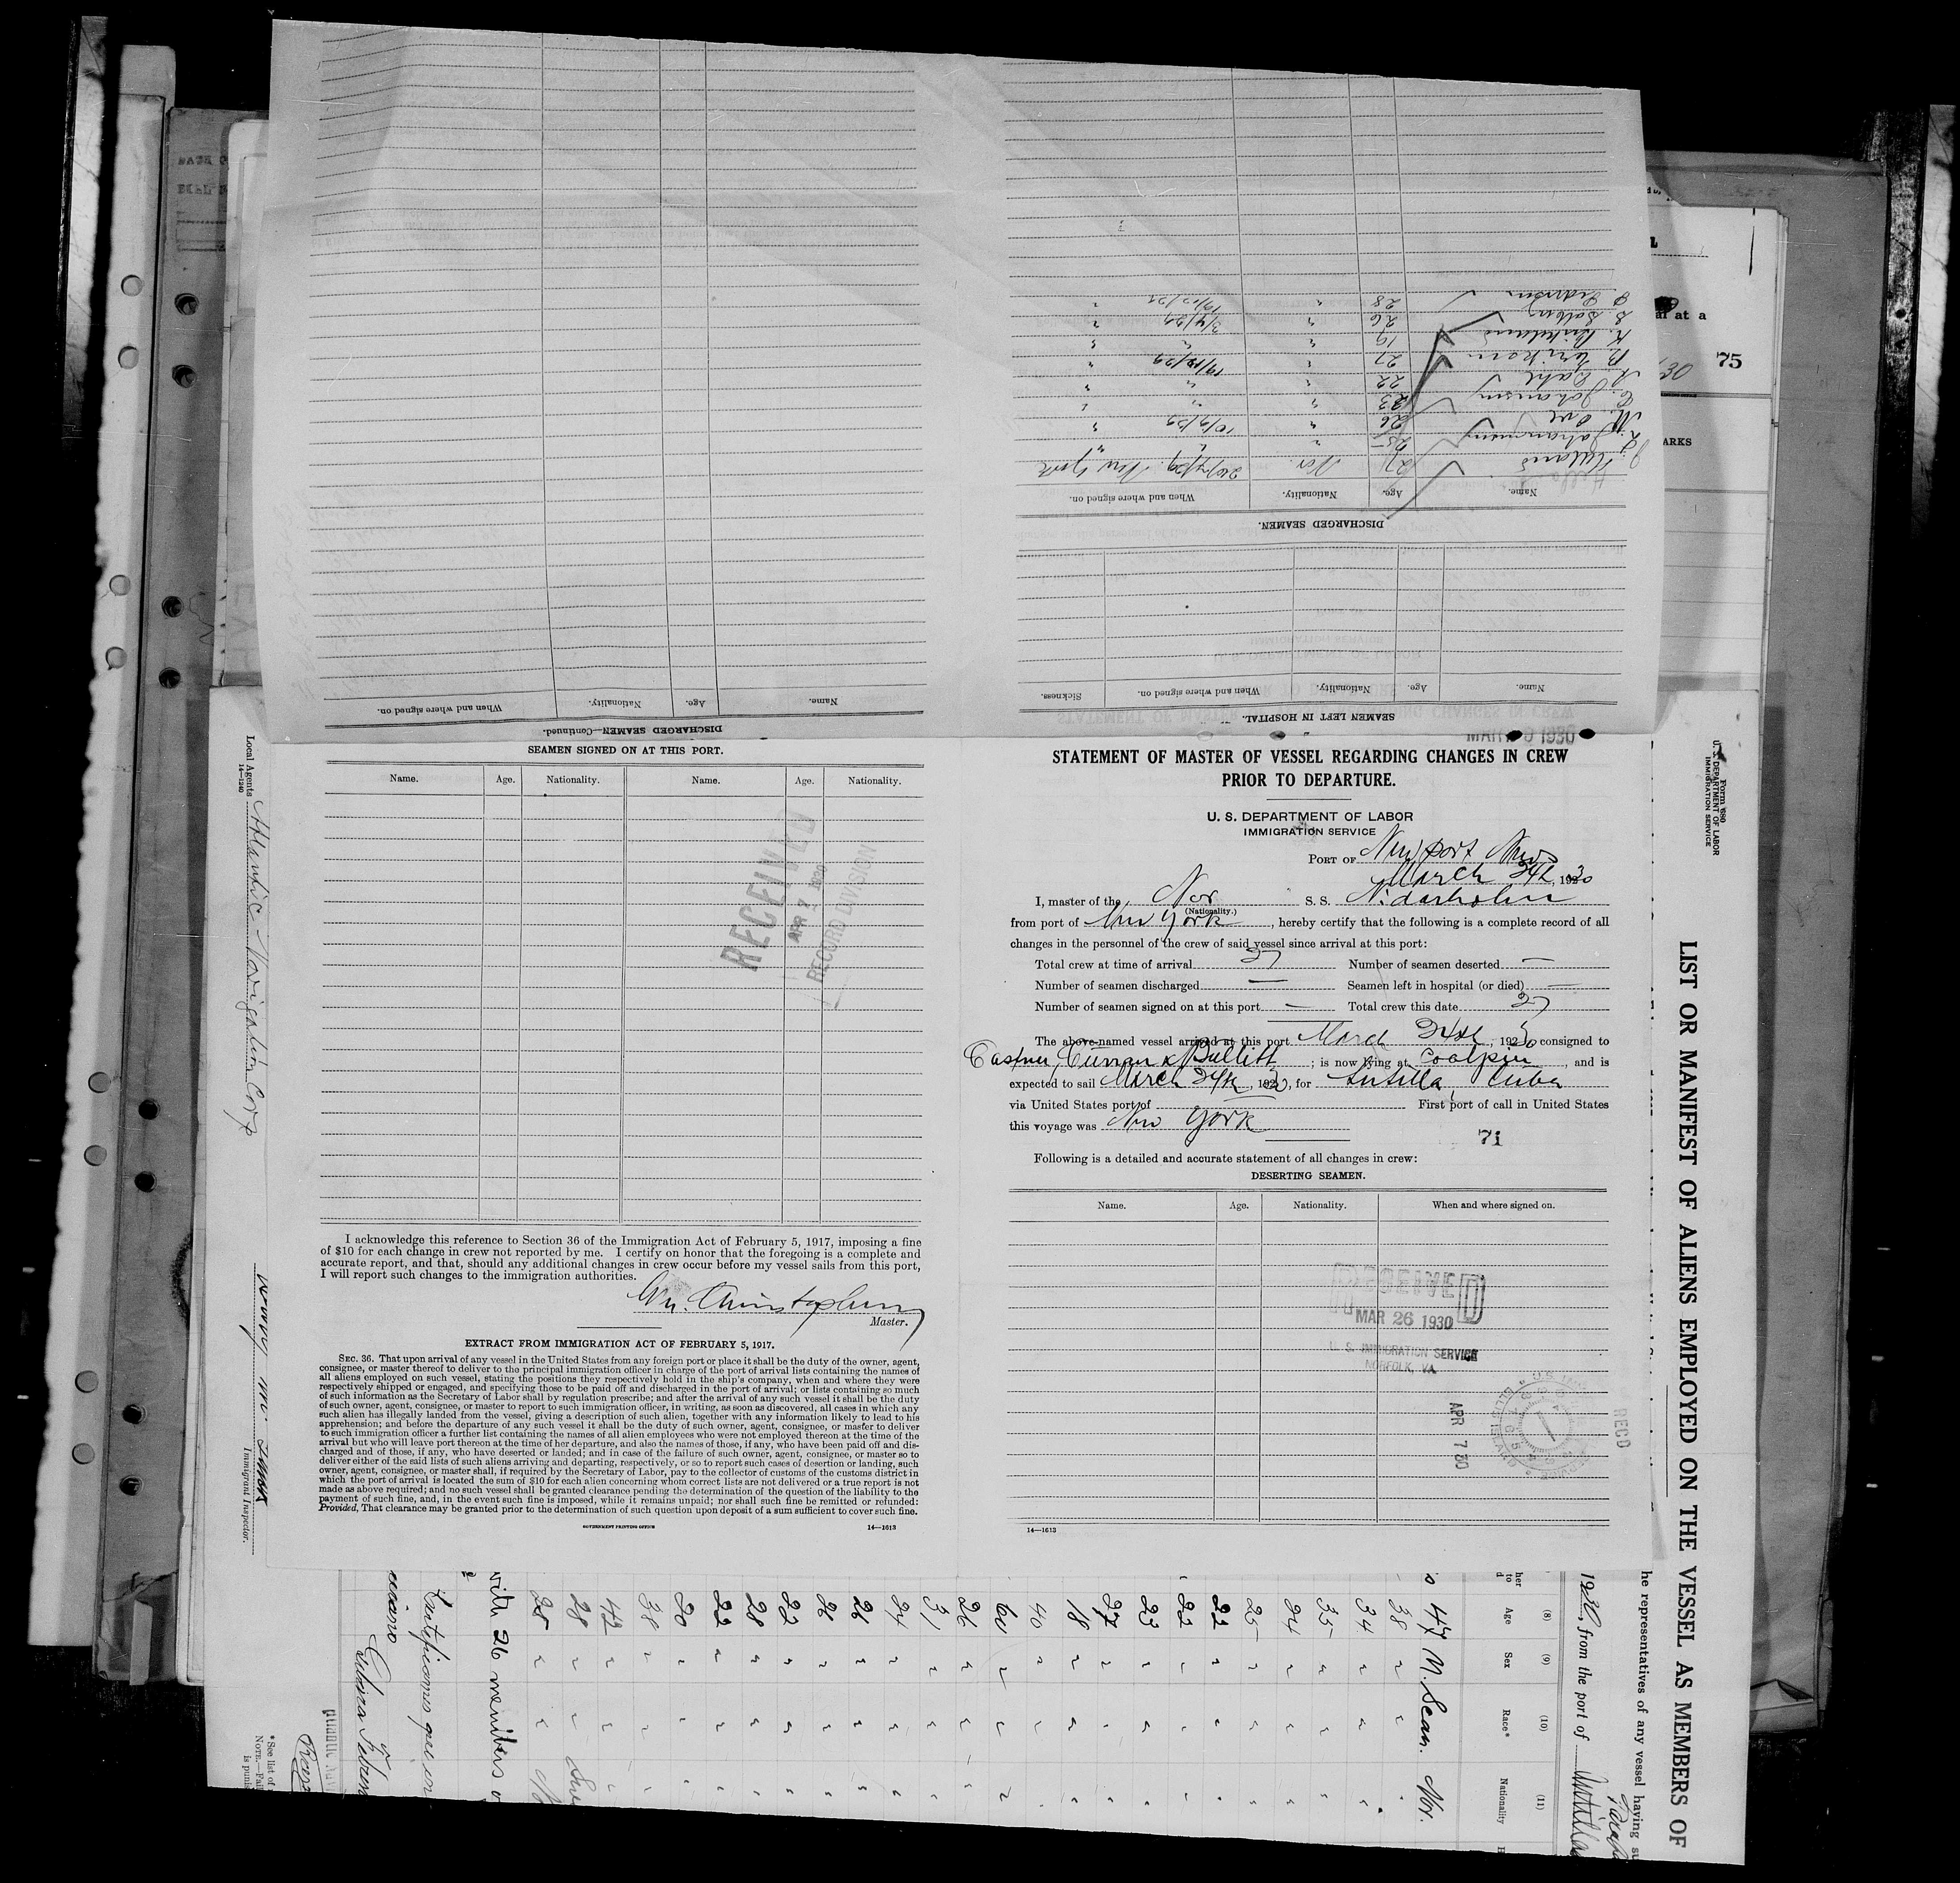 SEAMEN SIGNED ON AT THIS PORT.
Name. Age. Nationality. Name. Age. Nationality.
RECEIVED
APR 7 1930
RECORD DIVISION
I acknowledge this reference to Section 36 of the Immigration Act of February 5, 1917, imposing a fine
of $10 for each change in crew not reported by me. I certify on honor that the foregoing is a complete and
accurate report, and that, should any additional changes in crew occur before my vessel sails from this port,
I will report such changes to the immigration authorities.
Master.
EXTRACT FROM IMMIGRATION ACT OF FEBRUARY 5, 1917.
SEC. 36. That upon arrival of any vessel in the United States from any foreign port or place it shall be the duty of the owner, agent,
consignee, or master thereof to deliver to the principal immigration officer in charge of the port of arrival lists containing the names of
all aliens employed on such vessel, stating the positions they respectively hold in the ship's company, when and where they were
respectively shipped or engaged, and specifying those to be paid off and discharged in the port of arrival; or lists containing so much
of such information as the Secretary of Labor shall by regulation prescribe; and after the arrival of any such vessel it shall be the duty
of such owner, agent, consignee, or master to report to such immigration officer, in writing, as soon as discovered, all cases in which any
such alien has illegally landed from the vessel, giving a description of such alien, together with any information likely to lead to his
apprehension; and before the departure of any such vessel it shall be the duty of such owner, agent, consignee, or master to deliver
to such immigration officer a further list containing the names of all alien employees who were not employed thereon at the time of the
arrival but who will leave port thereon at the time of her departure, and also the names of those, if any, who have been paid off and dis-
charged and of those, if any, who have deserted or landed; and in case of the failure of such owner, agent, consignee, or master so to
deliver either of the said lists of such aliens arriving and departing, respectively, or so to report such cases of desertion or landing, such
owner, agent, consignee, or master shall, if required by the Secretary of Labor, pay to the collector of customs of the customs district in
which the port of arrival is located the sum of $10 for each alien concerning whom correct lists are not delivered or a true report is not
made as above required; and no such vessel shall be granted clearance pending the determination of the question of the liability to the
payment of such fine, and, in the event such fine is imposed, while it remains unpaid; nor shall such fine be remitted or refunded:
Provided, That clearance may be granted prior to the determination of such question upon deposit of a sum sufficient to cover such fine.
GOVERNMENT PRINTING OFFICE 14—1613
STATEMENT OF MASTER OF VESSEL REGARDING CHANGES IN CREW
PRIOR TO DEPARTURE.
U. S. DEPARTMENT OF LABOR
IMMIGRATION SERVICE
PORT OF Newport News
March 24th, 1930
I, master of the Nor S. S. Nidarholm
(Nationality.)
from port of New York, hereby certify that the following is a complete record of all
changes in the personnel of the crew of said vessel since arrival at this port:
Total crew at time of arrival 27 Number of seamen deserted —
Number of seamen discharged — Seamen left in hospital (or died) —
Number of seamen signed on at this port — Total crew this date 27
The above-named vessel arrived at this port March 24th, 1930 consigned to
Castner, Curran & Bullitt; is now lying at Coalpier, and is
expected to sail March 24th, 1930, for Antilla, Cuba
via United States port of First port of call in United States
this voyage was New York
71
Following is a detailed and accurate statement of all changes in crew:
DESERTING SEAMEN.
Name. Age. Nationality. When and where signed on.
RECEIVED
MAR 26 1930
U. S. IMMIGRATION SERVICE
NORFOLK, VA.
APR 7 30
RECD
14—1613
SEAMEN LEFT IN HOSPITAL.
Name. Age. Nationality. When and where signed on. Sickness.
DISCHARGED SEAMEN.
Name. Age. Nationality. When and where signed on.
27 Nor. New York
25
26 10/9/29
C. Johansen 23
A. Dahl 22
27
K. Birkeland 19
26 3/4/29
28
DISCHARGED SEAMEN—Continued.
Name. Age. Nationality. When and where signed on.
75
Form 680
U. S. DEPARTMENT OF LABOR
IMMIGRATION SERVICE
LIST OR MANIFEST OF ALIENS EMPLOYED ON THE VESSEL AS MEMBERS OF
he representatives of any vessel having su
1930, from the port of Antilla
(8) (9) (10) (11)
Age Sex Race* Nationality
47 M. Scan. Nor.
38
34
35
24
25
22
22
23
27
18
40
60
26
31
24
26
26
22
28
22
20
38
42
28
28
with 26 members o
Local Agents Atlantic Navigation Corp
14—1240
Immigrant Inspector.
*See list of
NOTE.—Fai
is puni